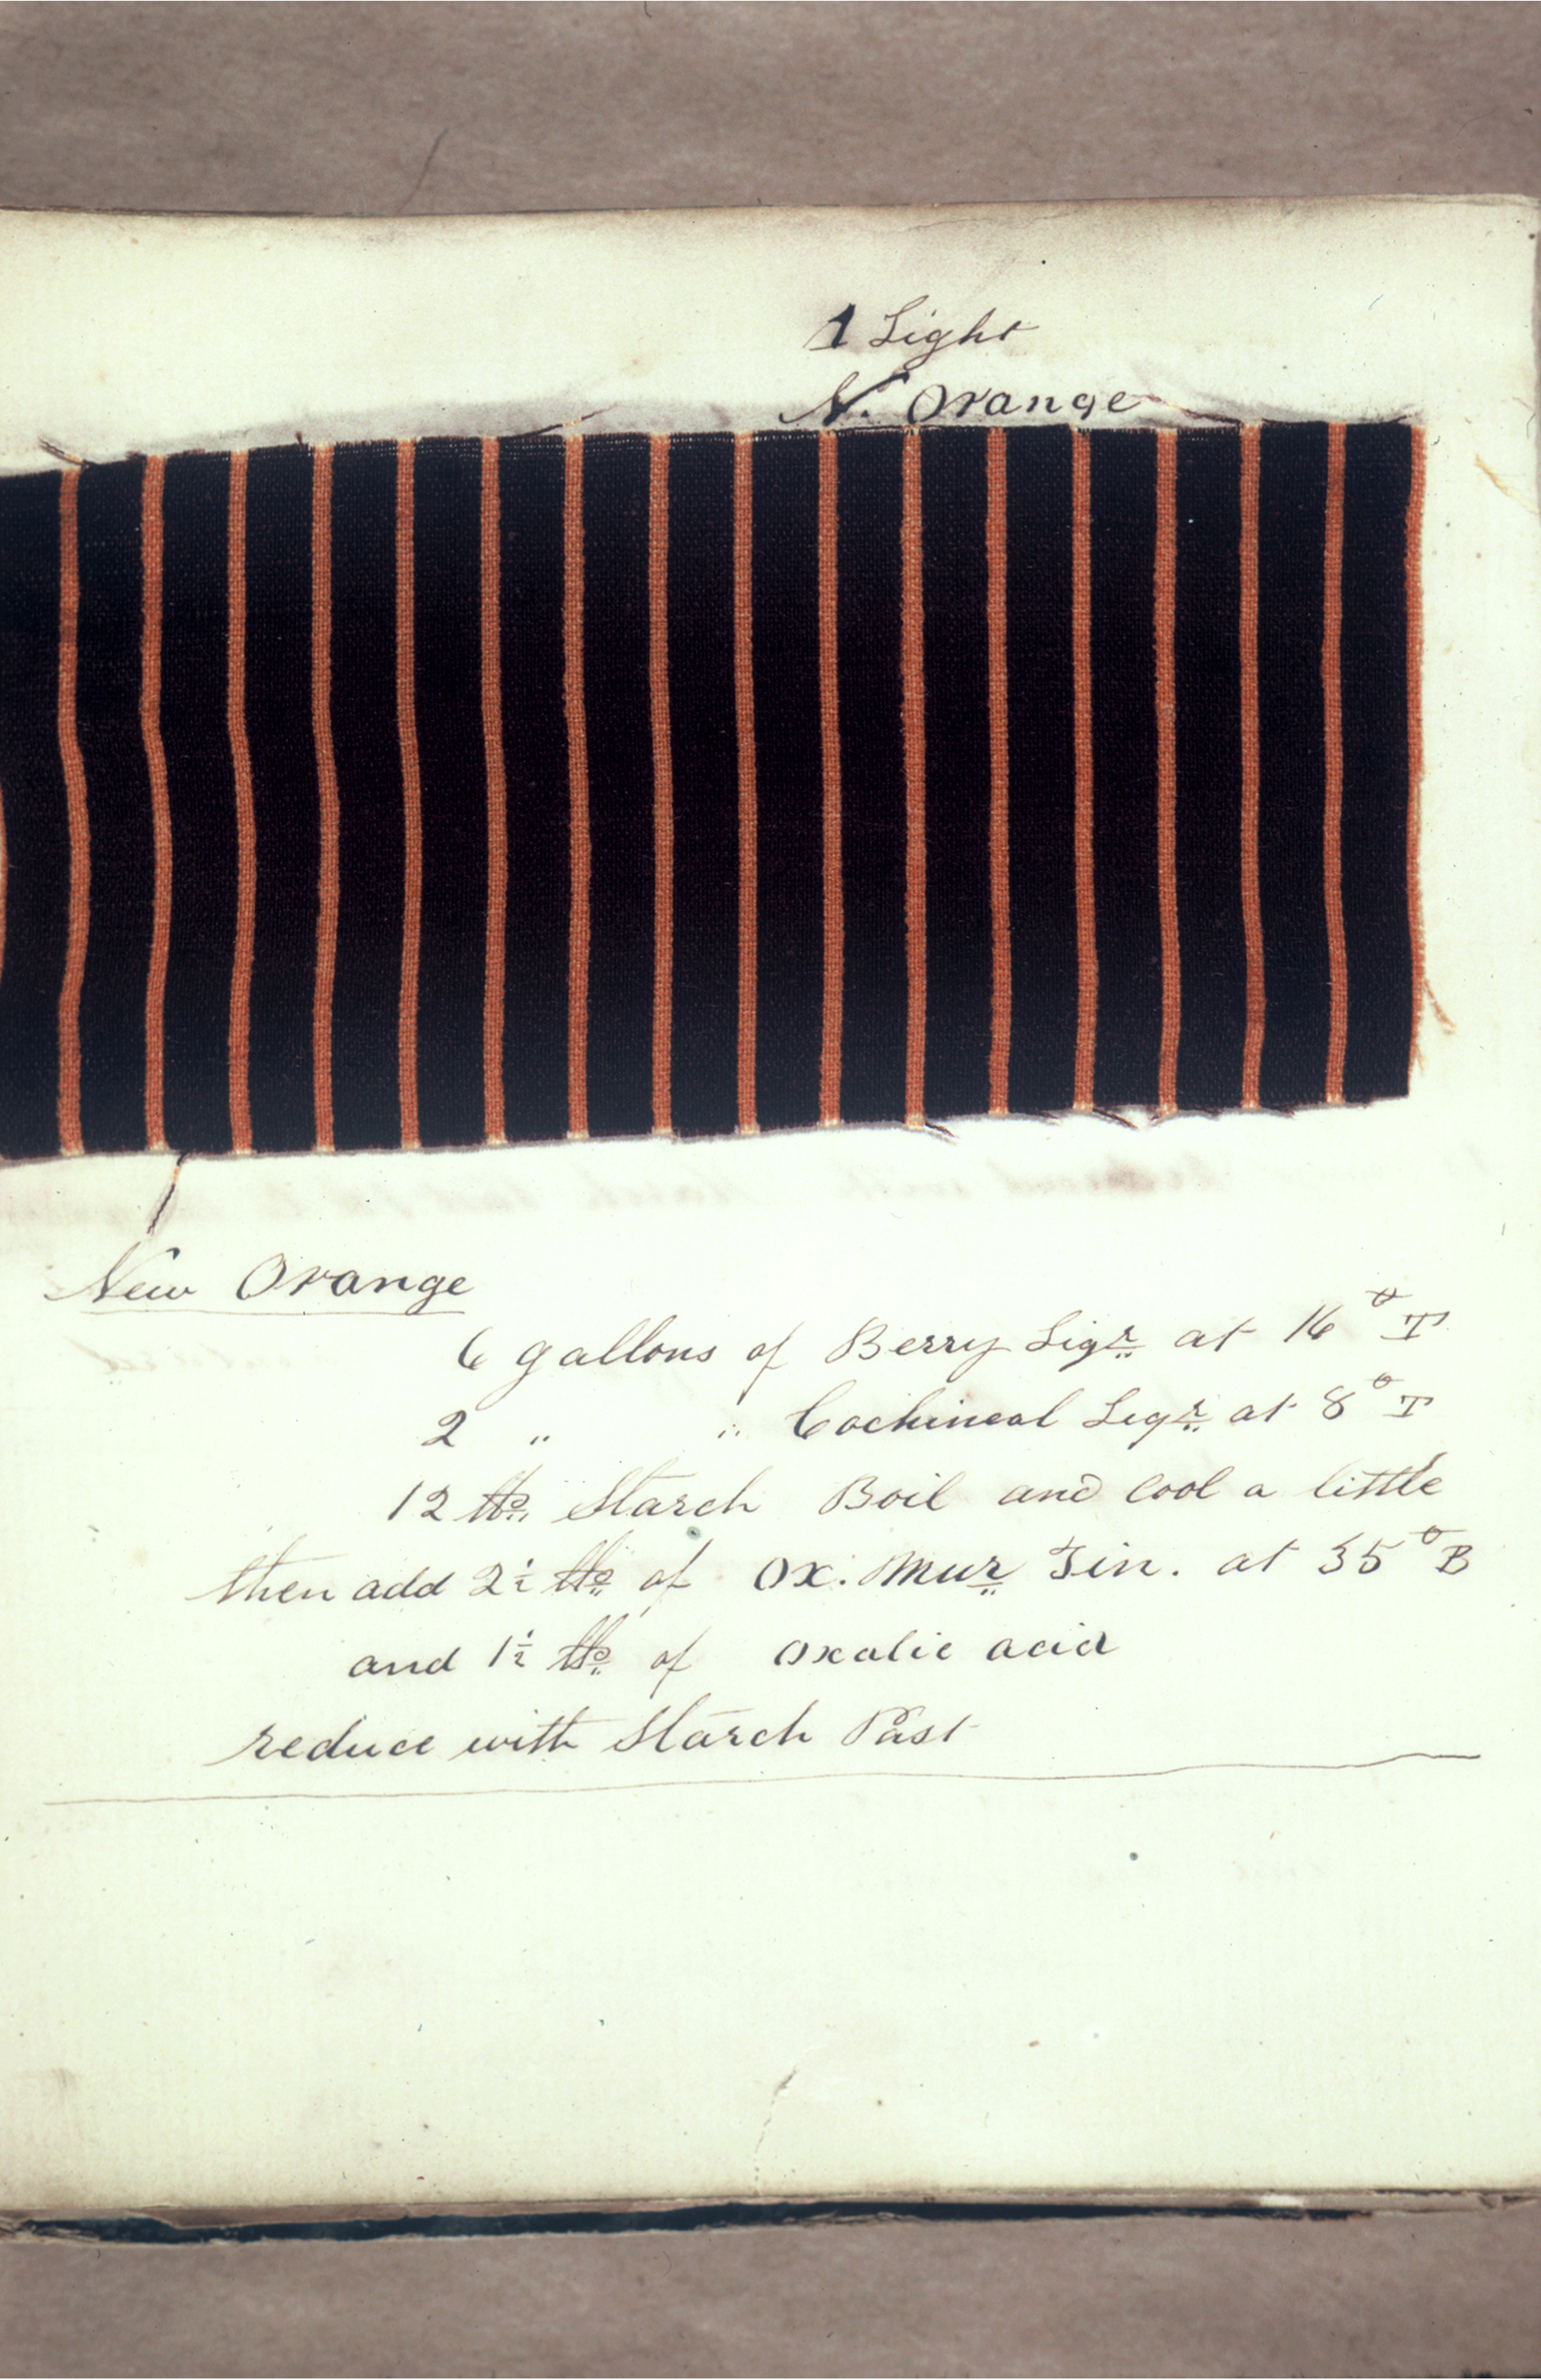 1 Light
N. Orange
New Orange
6 gallons of Berry Liqr at 16° T
2 " " Cochineal Liqr at 8° T
12 lbs Starch Boil and cool a little
then add 2½ lbs of Ox. Mur Tin. at 55° B
and 1½ lbs of Oxalic acid
reduce with Starch Past